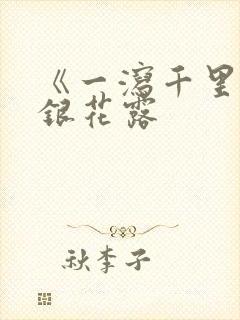 《一瀉千里
銀花露
秋李子